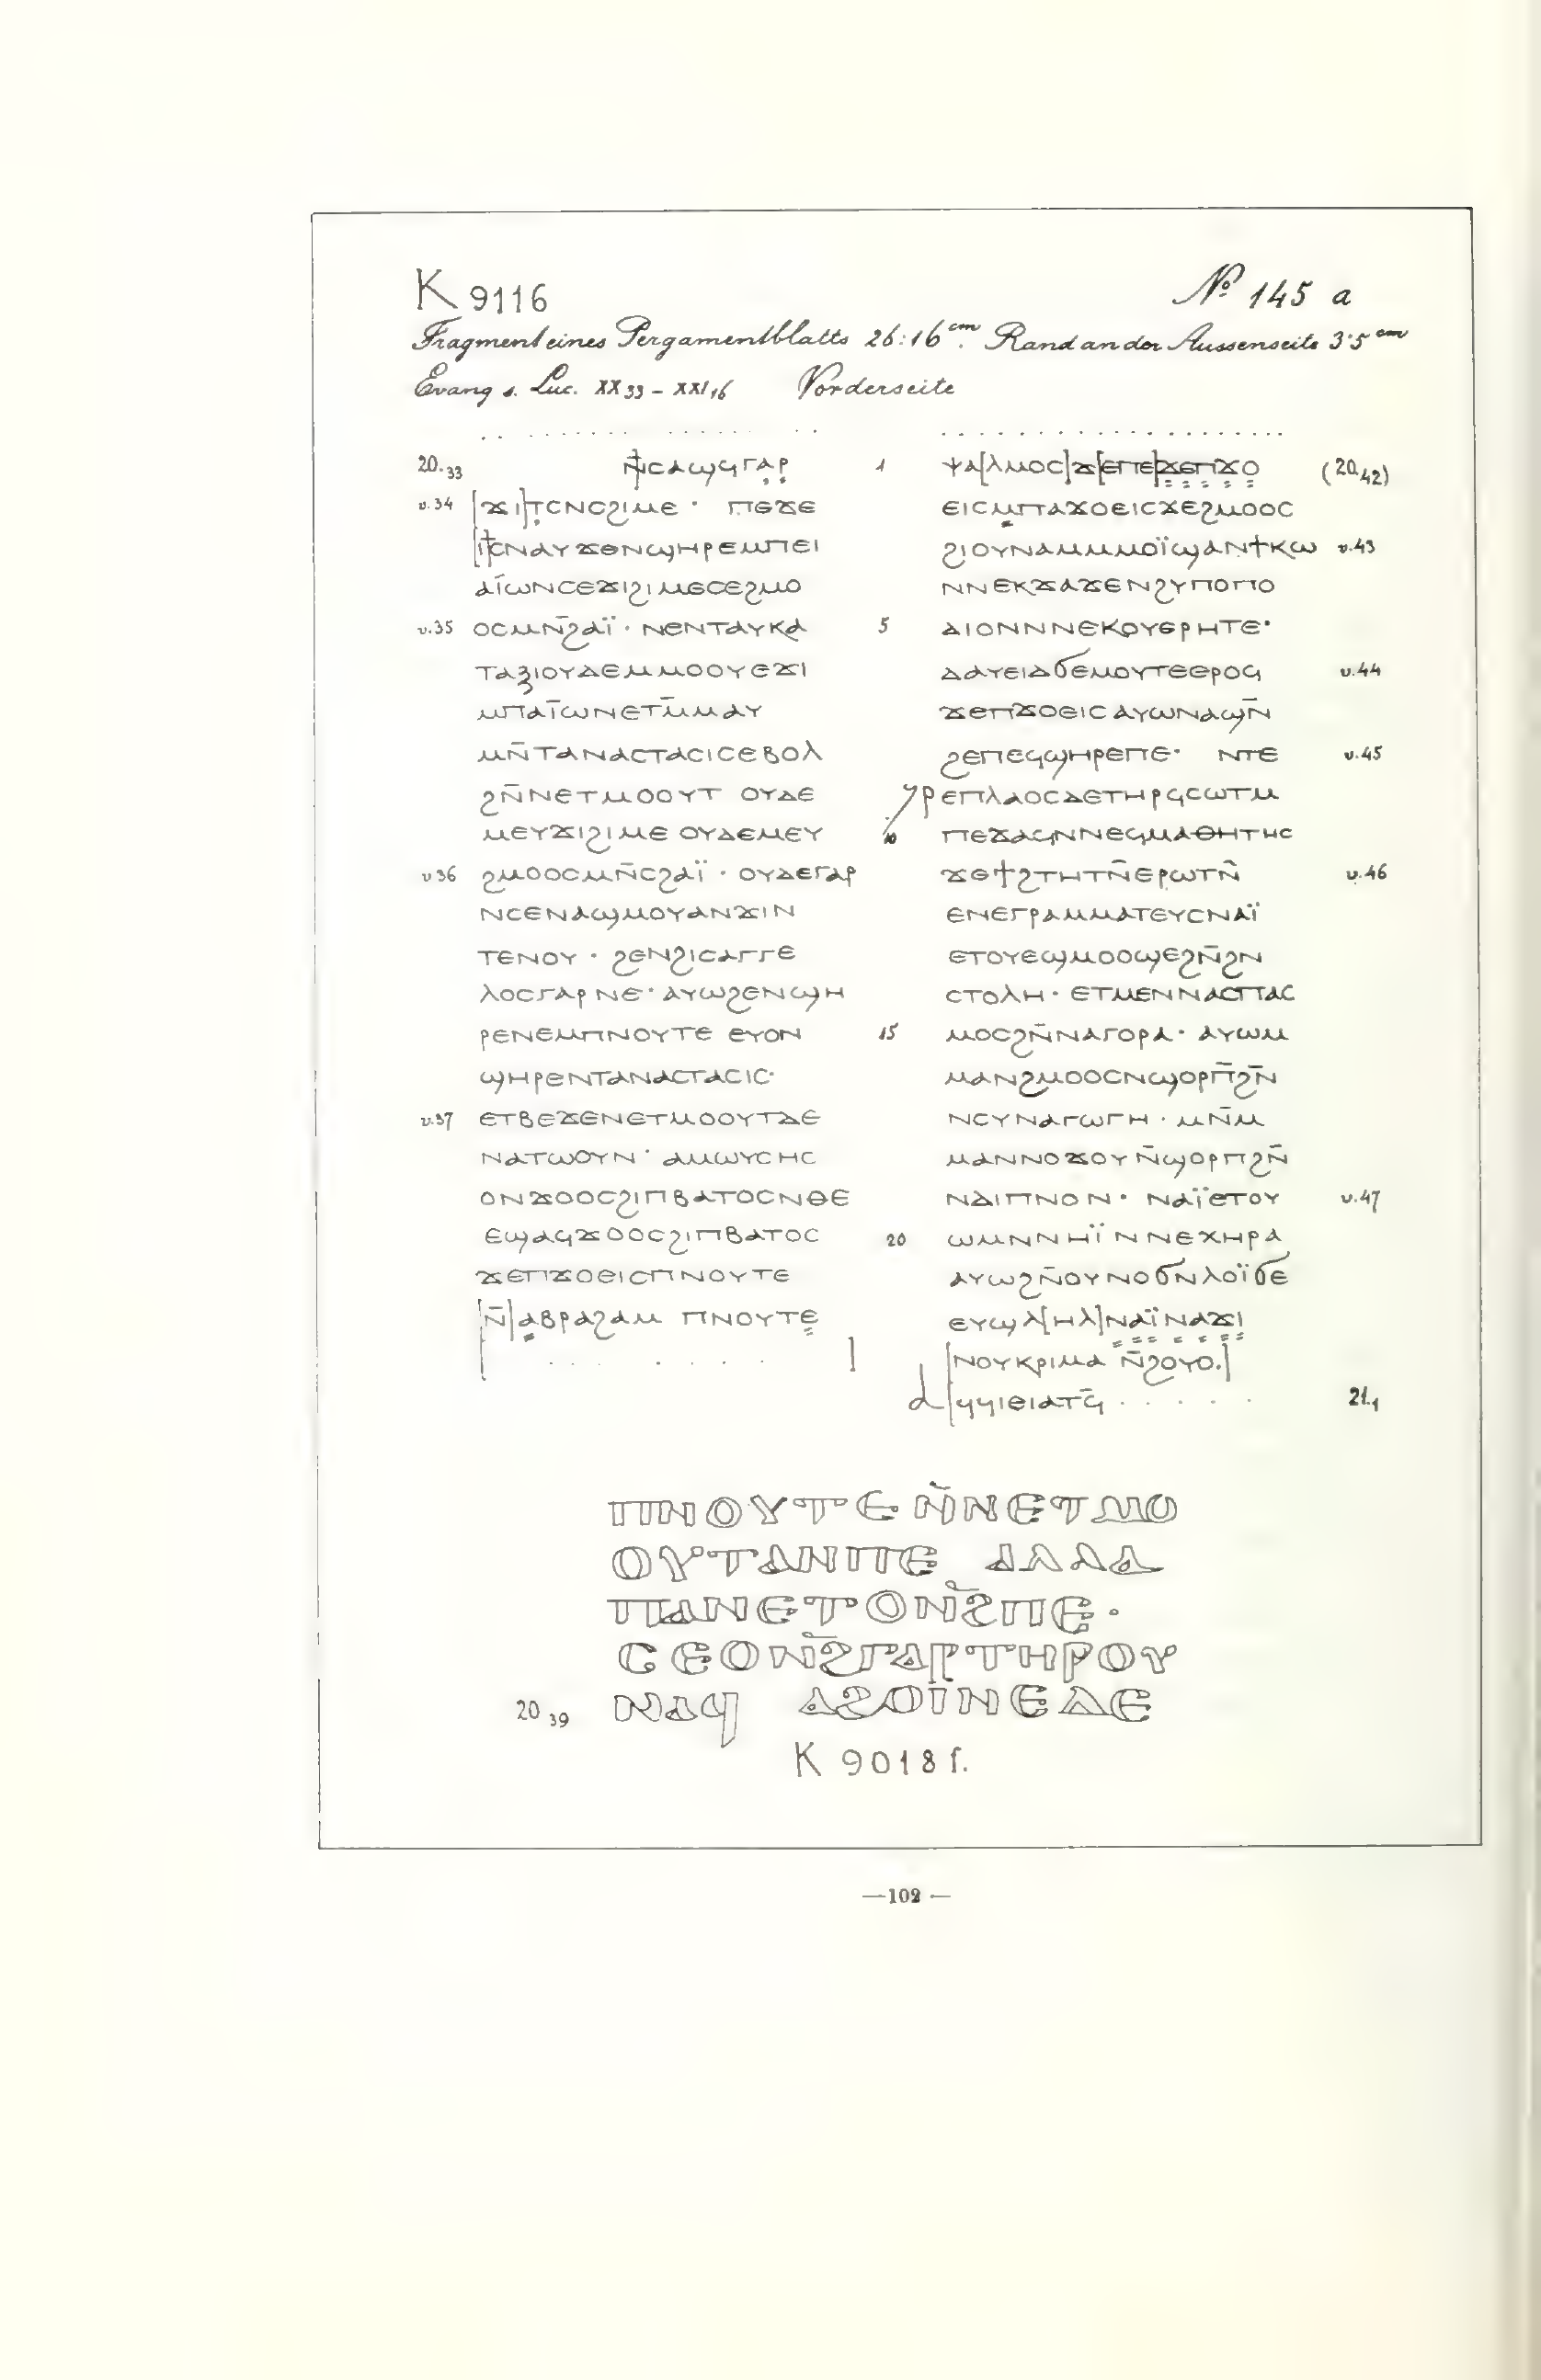 K 9116
№ 145 a
Fragment eines Pergamentblatts 26:16 cm. Rand an der Aussenseite 3·5 cm
Evang s. Luc. XX 33 – XXI 16 Vorderseite
20.33 ⲙⲡⲥⲁϣϥⲅⲁⲣ
v.34 [ϫⲓ]ⲧⲥⲛⲥϩⲓⲙⲉ · ⲡⲉϫⲉ
[ⲓ̅ⲥ̅]ⲛⲁⲩϫⲉⲛϣⲏⲣⲉⲙⲡⲉⲓ
ⲁⲓ̈ⲱⲛⲥⲉϫⲓϩⲓⲙⲉⲥⲉϩⲙⲟ
v.35 ⲟⲥⲙⲛ̅ϩⲁⲓ̈ · ⲛⲉⲛⲧⲁⲩⲕⲁ
ⲧⲁⲝⲓⲟⲩⲇⲉⲙⲙⲟⲟⲩⲉϫⲓ
ⲙⲡⲁⲓ̈ⲱⲛⲉⲧⲙ̅ⲙⲁⲩ
ⲙⲛ̅ⲧⲁⲛⲁⲥⲧⲁⲥⲓⲥⲉⲃⲟⲗ
ϩⲛ̅ⲛⲉⲧⲙⲟⲟⲩⲧ ⲟⲩⲇⲉ
ⲙⲉⲩϫⲓϩⲓⲙⲉ ⲟⲩⲇⲉⲙⲉⲩ
v.36 ϩⲙⲟⲟⲥⲙⲛ̅ⲥϩⲁⲓ̈ · ⲟⲩⲇⲉⲅⲁⲣ
ⲛⲥⲉⲛⲁϣⲙⲟⲩⲁⲛϫⲓⲛ
ⲧⲉⲛⲟⲩ · ϩⲉⲛϩⲓⲥⲁⲅⲅⲉ
ⲗⲟⲥⲅⲁⲣ ⲛⲉ· ⲁⲩⲱϩⲉⲛϣⲏ
ⲣⲉⲛⲉⲙⲡⲛⲟⲩⲧⲉ ⲉⲩⲟⲛ
ϣⲏⲣⲉⲛⲧⲁⲛⲁⲥⲧⲁⲥⲓⲥ·
v.37 ⲉⲧⲃⲉϫⲉⲛⲉⲧⲙⲟⲟⲩⲧⲇⲉ
ⲛⲁⲧⲱⲟⲩⲛ· ⲁⲙⲱⲩⲥⲏⲥ
ⲟⲛϫⲟⲟⲥϩⲓⲡⲃⲁⲧⲟⲥⲛⲑⲉ
ⲉϣⲁϥϫⲟⲟⲥϩⲓⲡⲃⲁⲧⲟⲥ
ϫⲉⲡϫⲟⲉⲓⲥⲡⲛⲟⲩⲧⲉ
[ⲛ̅]ⲁⲃⲣⲁϩⲁⲙ ⲡⲛⲟⲩⲧⲉ
1 ⲯⲁ[ⲗⲙⲟⲥ]ϫ[ⲉⲡⲉ]ϫⲉⲡϫⲟ (20.42)
ⲉⲓⲥⲙⲡⲁϫⲟⲉⲓⲥϫⲉϩⲙⲟⲟⲥ
ϩⲓⲟⲩⲛⲁⲙⲙⲙⲟⲓ̈ϣⲁⲛϯⲕⲱ v.43
ⲛⲛⲉⲕϫⲁϫⲉⲛϩⲩⲡⲟⲡⲟ
5 ⲇⲓⲟⲛⲛⲛⲉⲕⲟⲩⲉⲣⲏⲧⲉ·
ⲇⲁⲩⲉⲓⲇϭⲉⲙⲟⲩⲧⲉⲉⲣⲟϥ v.44
ϫⲉⲡϫⲟⲉⲓⲥ ⲁⲩⲱⲛⲁϣⲛ̅
ϩⲉⲡⲉϥϣⲏⲣⲉⲡⲉ· ⲛⲧⲉ v.45
ⲣⲉⲡⲗⲁⲟⲥⲇⲉⲧⲏⲣϥⲥⲱⲧⲙ
10 ⲡⲉϫⲁϥⲛⲛⲉϥⲙⲁⲑⲏⲧⲏⲥ
ϫⲉϯϩⲧⲏⲧⲛ̅ⲉⲣⲱⲧⲛ̅ v.46
ⲉⲛⲉⲅⲣⲁⲙⲙⲁⲧⲉⲩⲥⲛⲁⲓ̈
ⲉⲧⲟⲩⲉϣⲙⲟⲟϣⲉϩⲛ̅ϩⲛ
ⲥⲧⲟⲗⲏ · ⲉⲧⲙⲉⲛⲛⲁⲥⲡⲁⲥ
15 ⲙⲟⲥϩⲛ̅ⲛⲁⲅⲟⲣⲁ· ⲁⲩⲱⲙ
ⲙⲁⲛϩⲙⲟⲟⲥⲛϣⲟⲣⲡ̅ϩⲛ̅
ⲛⲥⲩⲛⲁⲅⲱⲅⲏ · ⲙⲛ̅ⲙ
ⲙⲁⲛⲛⲟϫⲟⲩⲛ̅ϣⲟⲣⲡϩⲛ̅
ⲛⲇⲓⲡⲛⲟⲛ· ⲛⲁⲓ̈ⲉⲧⲟⲩ v.47
20 ⲱⲙⲛⲛⲏⲓ̈ⲛⲛⲉⲭⲏⲣⲁ
ⲁⲩⲱϩⲛ̅ⲟⲩⲛⲟϭⲛⲗⲟⲓ̈ϭⲉ
ⲉⲩϣⲗ[ⲏⲗ]ⲛⲁⲓ̈ⲛⲁϫⲓ
[ⲛⲟⲩⲕⲣⲓⲙⲁ ⲛ̅ϩⲟⲩⲟ.]
ⲁ[ϥϥⲓⲉⲓⲁⲧϥ̅ 21.1
ⲡⲛⲟⲩⲧⲉ ⲛ̅ⲛⲉⲧⲙⲟ
ⲟⲩⲧⲁⲛⲡⲉ ⲁⲗⲗⲁ
ⲡⲁⲛⲉⲧⲟⲛϩ̅ⲡⲉ·
ⲥⲉⲟⲛϩ̅ⲅⲁⲣⲧⲏⲣⲟⲩ
20 39 ⲛⲁϥ ⲁϩⲟⲓ̈ⲛⲉⲇⲉ
K 9018 f.
—102—